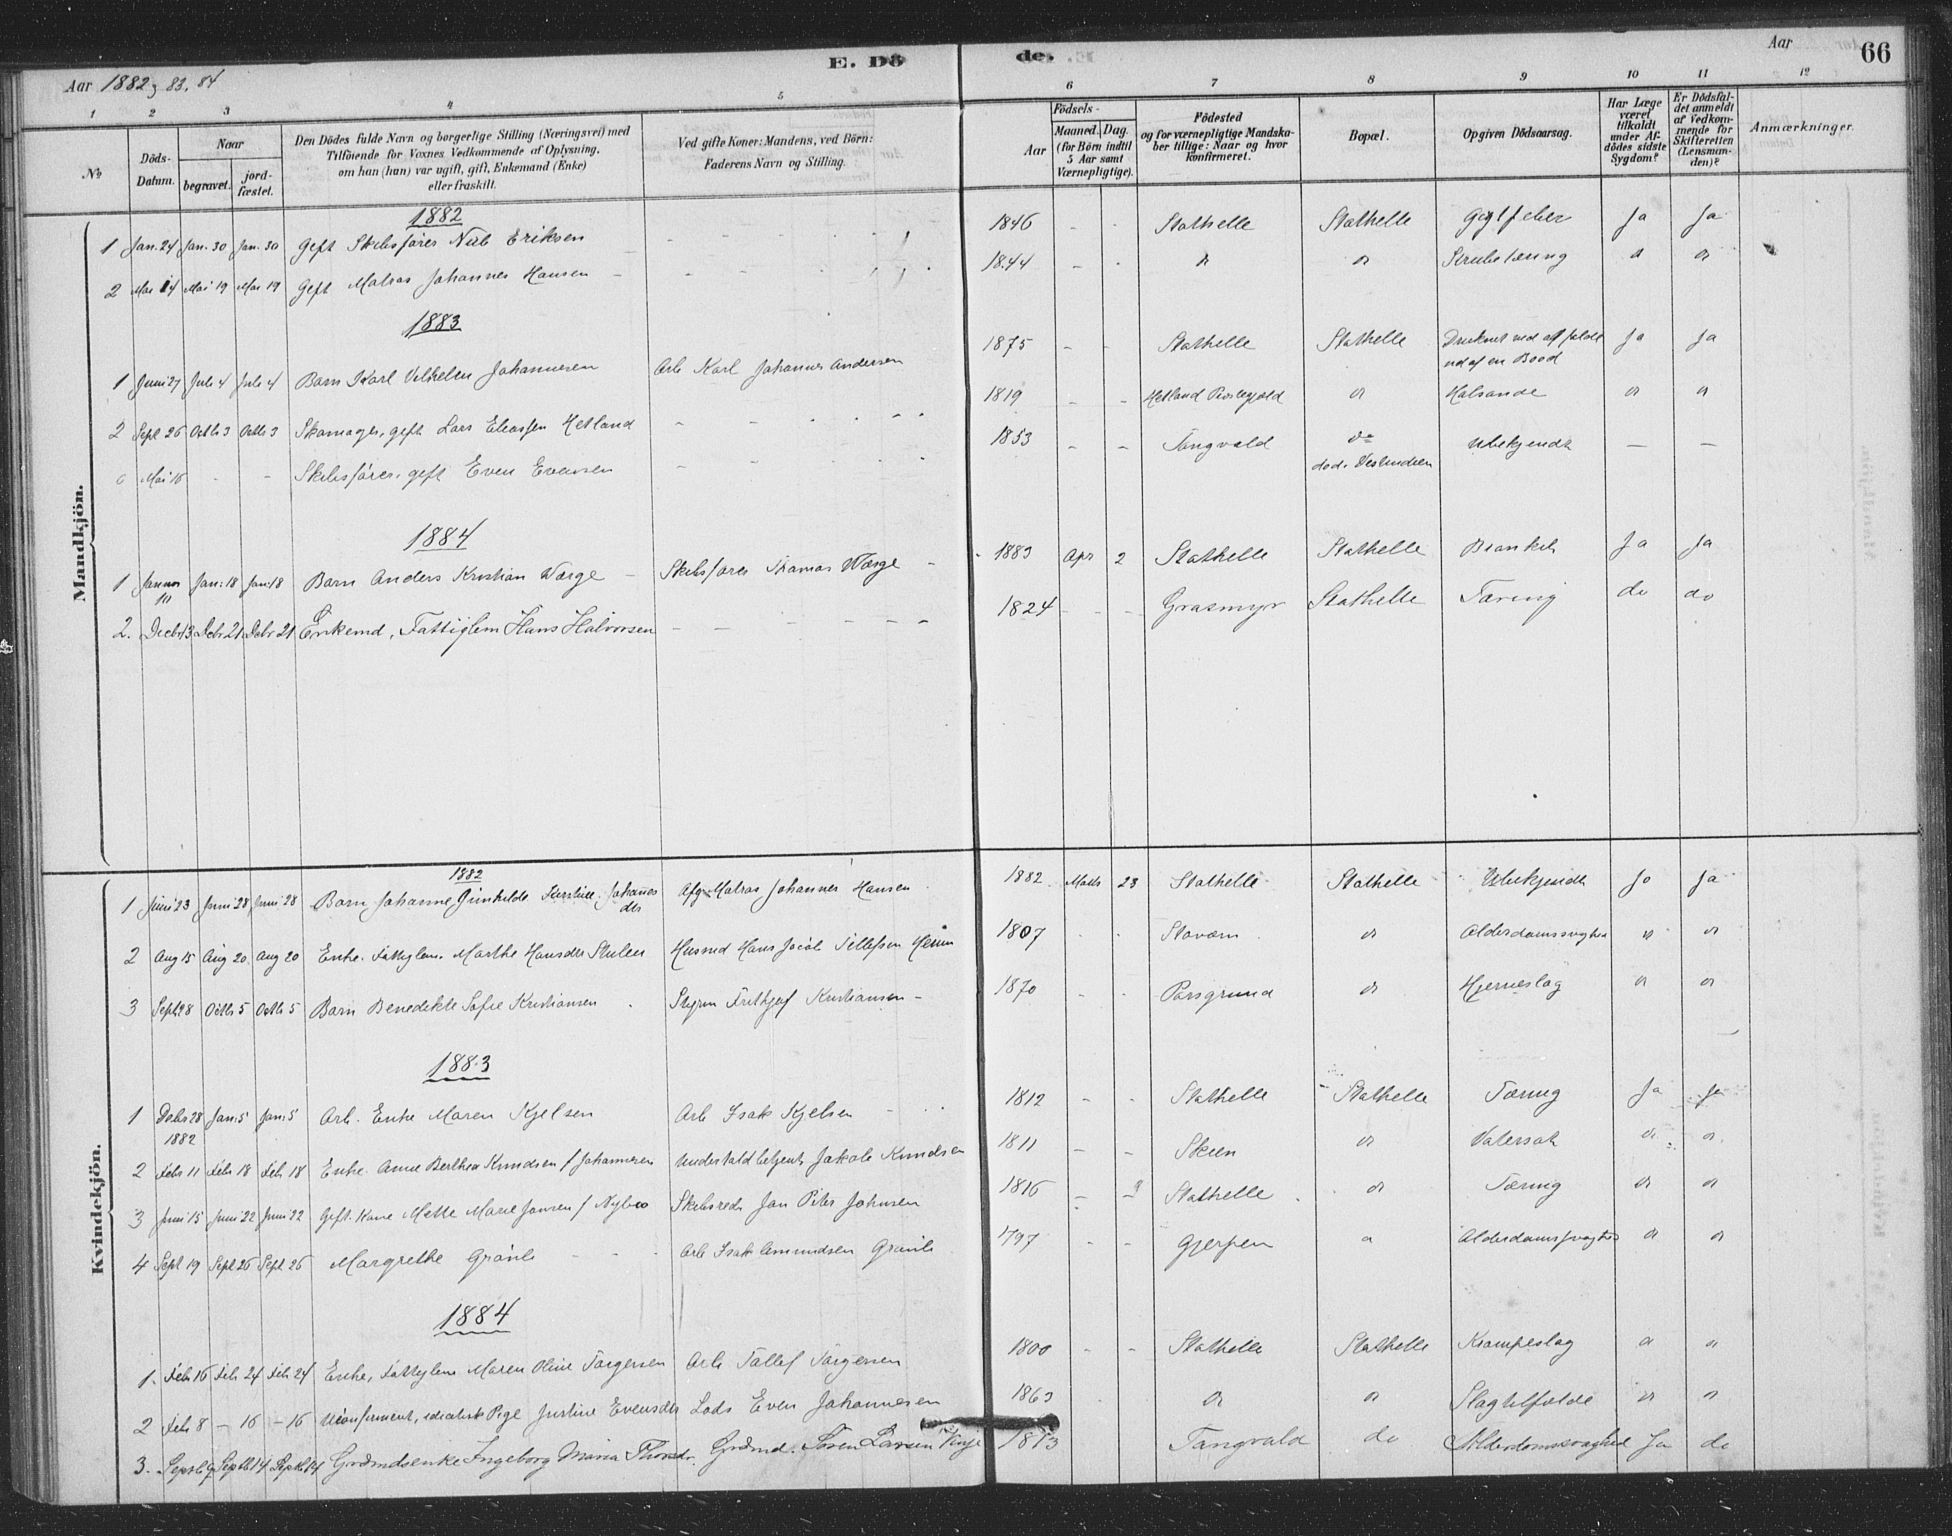 Aar 1882, 83, 84
E. Dö
de.
Aar
66
1 2 3 4 5 6 7 8 9 10 11 12
No
Döds-Datum.
Naar
begravet.
jordfæstet.
Den Dödes fulde Navn og borgerlige Stilling (Næringsvei) med
Tilföiende for Voxnes Vedkommende af Oplysning,
om han (hun) var ugift, gift, Enkemand (Enke)
eller fraskilt.
Ved gifte Koner: Mandens, ved Börn:
Faderens Navn og Stilling.
Födsels-
Aar
Maaned. Dag.
(for Börn indtil
5 Aar samt
Værnepligtige).
Födested
og for værnepligtige Mandska-
ber tillige: Naar og hvor
konfirmeret.
Bopæl.
Opgiven Dödsaarsag.
Har Læge
været
tilkaldt
under Af-
dödes sidste
Sygdom?
Er Dödsfal-
det anmeldt
af Vedkom-
mende for
Skifteretten
(Lensman-
den)?
Anmærkninger.
Mandkjön.
1882
1 Jan. 24 Jan. 30 Jan. 30 Gift Skibsfører Nils Eriksen - - 1846 - - Stathelle Stathelle Gigtfeber Ja Ja
2 Mai 14 Mai 19 Mai 19 Gift Matros Johannes Hansen - - 1844 - - do do Strubetæring do do
1883
1 Juni 27 Juli 4 Juli 4 Barn Karl Vilhelm Johannesen Arb Karl Johannes Andersen 1875 - - Stathelle Stathelle Druknet ved at falde Ja Ja
ud af en Baad
2 Sept 26 Octb 3 Octb 3 Skomager, gift Lars Eliassen Hetland - - 1819 - - Hetland Præstegjæld do Halsonde do do
Mai 16 - - Skibsfører, gift Even Evensen - - 1853 - - Tangvald do Ubekjendt - -
död i Vestindien
1884
1 Januar 10 Jan: 18 Jan: 18 Barn Anders Kristian Wærge - Skibsfører Thomas Wærge - 1883 Apr 2 Stathelle Stathelle Bronkit Ja Ja
2. Decbr 13 Decbr 21 Decbr 21 Enkemd, Fattiglem Hans Halvorsen - - 1824 - - Grasmyr Stathelle Tæring do do
Kvindekjön.
1882
1 Juni 23 Juni 28 Juni 28 Barn Johanne Gunhilde Kirstine Johannesdtr Afg. Matros Johannes Hansen 1882 Mats 23 Stathelle Stathelle Ubekjendt Ja Ja
2 Aug 15 Aug 20 Aug 20 Enke. Fattiglem. Marthe Hansdtr Stulen Husmd Hans Jacob Tellefsen 1807 - - Staværn do Alderdomssvaghed do do
3 Sept 28 Octb 5 Octb 5 Barn Benedikte Sofie Kristiansen Styrm Frithjof Kristiansen - 1870 - - Porsgrund do Hjerneslag do do
1883
1 Debr 28 Jan: 5 Jan: 5 Arb. Enke Maren Kjelsen Arb Isak Kjelsen - 1812 - - Stathelle Stathelle Tæring Ja Ja
1882
2 Feb 11 Feb 18 Feb 18 Enke. Anne Berthea Knudsen f Johannesen Undertoldbetjent Jakob Knudsen 1811 - - Skien do Vatersot do do
3 Juni 15 Juni 22 Juni 22 Gift. Kone Mette Marie Jansen f Nybro Skibsreder Jan Peter Johnsen 1816 - - Stathelle do Tæring do do
4 Sept 19 Sept 26 Sept 26 Margrethe Grönli - - Arb Isak Amundsen Grönli 1797 - - Gjerpen do Alderdomssvaghed do do
1884
1. Feb 16 Feb 24 Feb 24 Enke, Fattiglem Maren Oline Torgersen Arb Tollef Torgersen 1800 - - Stathelle Stathelle Krampeslag do do
2 Feb 8 - 16 - 16 Ukonfirmeret, idiotisk Pige Justine Evensdtr Lods Even Johannesen 1863 do do Slagtilfælde do do
3. Septb 9 Septb 14 Septb 14 Grdmdsenke Ingeborg Maria Thorsdr. Grdmd. Søren Larsen Vinje 1813 Tangvald do Alderdomssvaghed Ja do